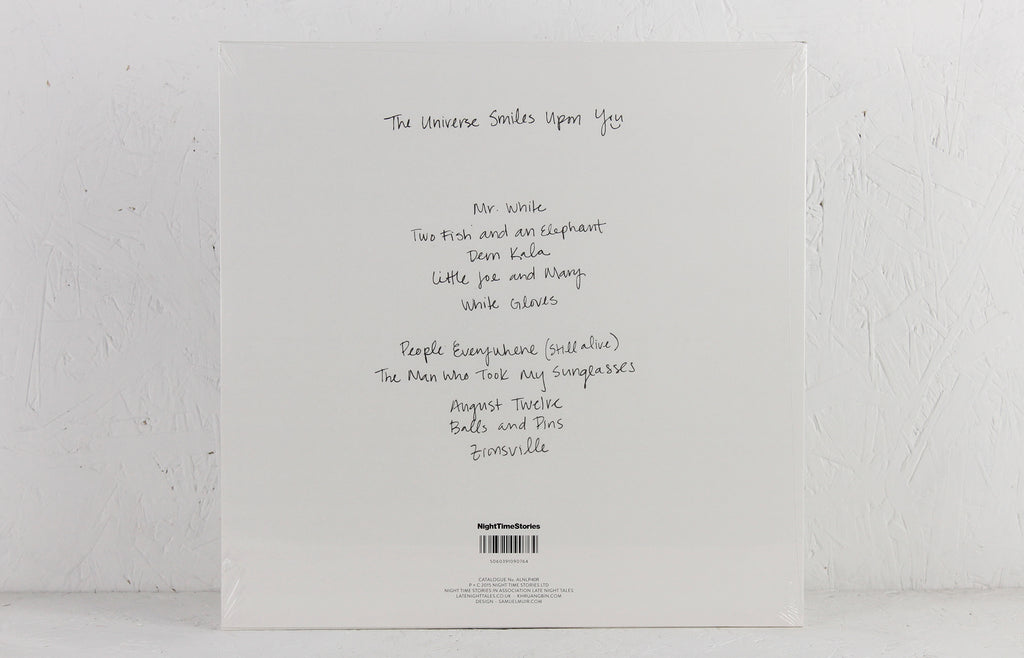 The Universe Smiles Upon You
Mr. White
Two Fish and an Elephant
Dern Kala
Little Joe and Mary
White Gloves
People Everywhere (Still alive)
The Man Who Took My Sunglasses
August Twelve
Balls and Pins
Zionsville
NightTimeStories
5060391090764
CATALOGUE No. ALNLP40R
P + C 2015 NIGHT TIME STORIES LTD
NIGHT TIME STORIES IN ASSOCIATION LATE NIGHT TALES.
LATENIGHTTALES.CO.UK - KHRUANGBIN.COM
DESIGN - SAMUELMUIR.COM